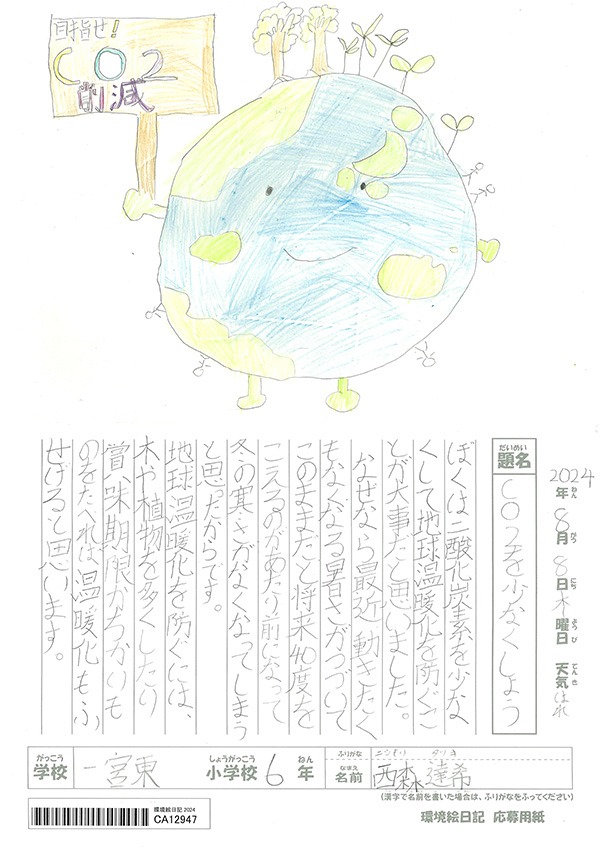 目指せ!
CO2
削減
2024年 8月 8日 木曜日 天気 はれ
ねん がつ にち ようび てんき
だいめい
題名
CO2を少なくしよう
ぼくは二酸化炭素を少な
くして地球温暖化を防ぐこ
とが大事だと思いました。
なぜなら最近、動きたく
もなくなる暑さがつづいて
このままだと将来40度を
こえるのがあたり前になって
冬の寒さがなくなってしまう
と思ったからです。
地球温暖化を防ぐには、
木や植物を多くしたり
賞味期限がちかいも
のをたべれば温暖化もふ
せげると思います。
がっこう しょうがっこう ねん ふりがな
学校 一宮東 小学校 6 年
なまえ
名前 西森 達希
(漢字で名前を書いた場合は、ふりがなをふってください)
環境絵日記 2024
CA12947
環境絵日記 応募用紙